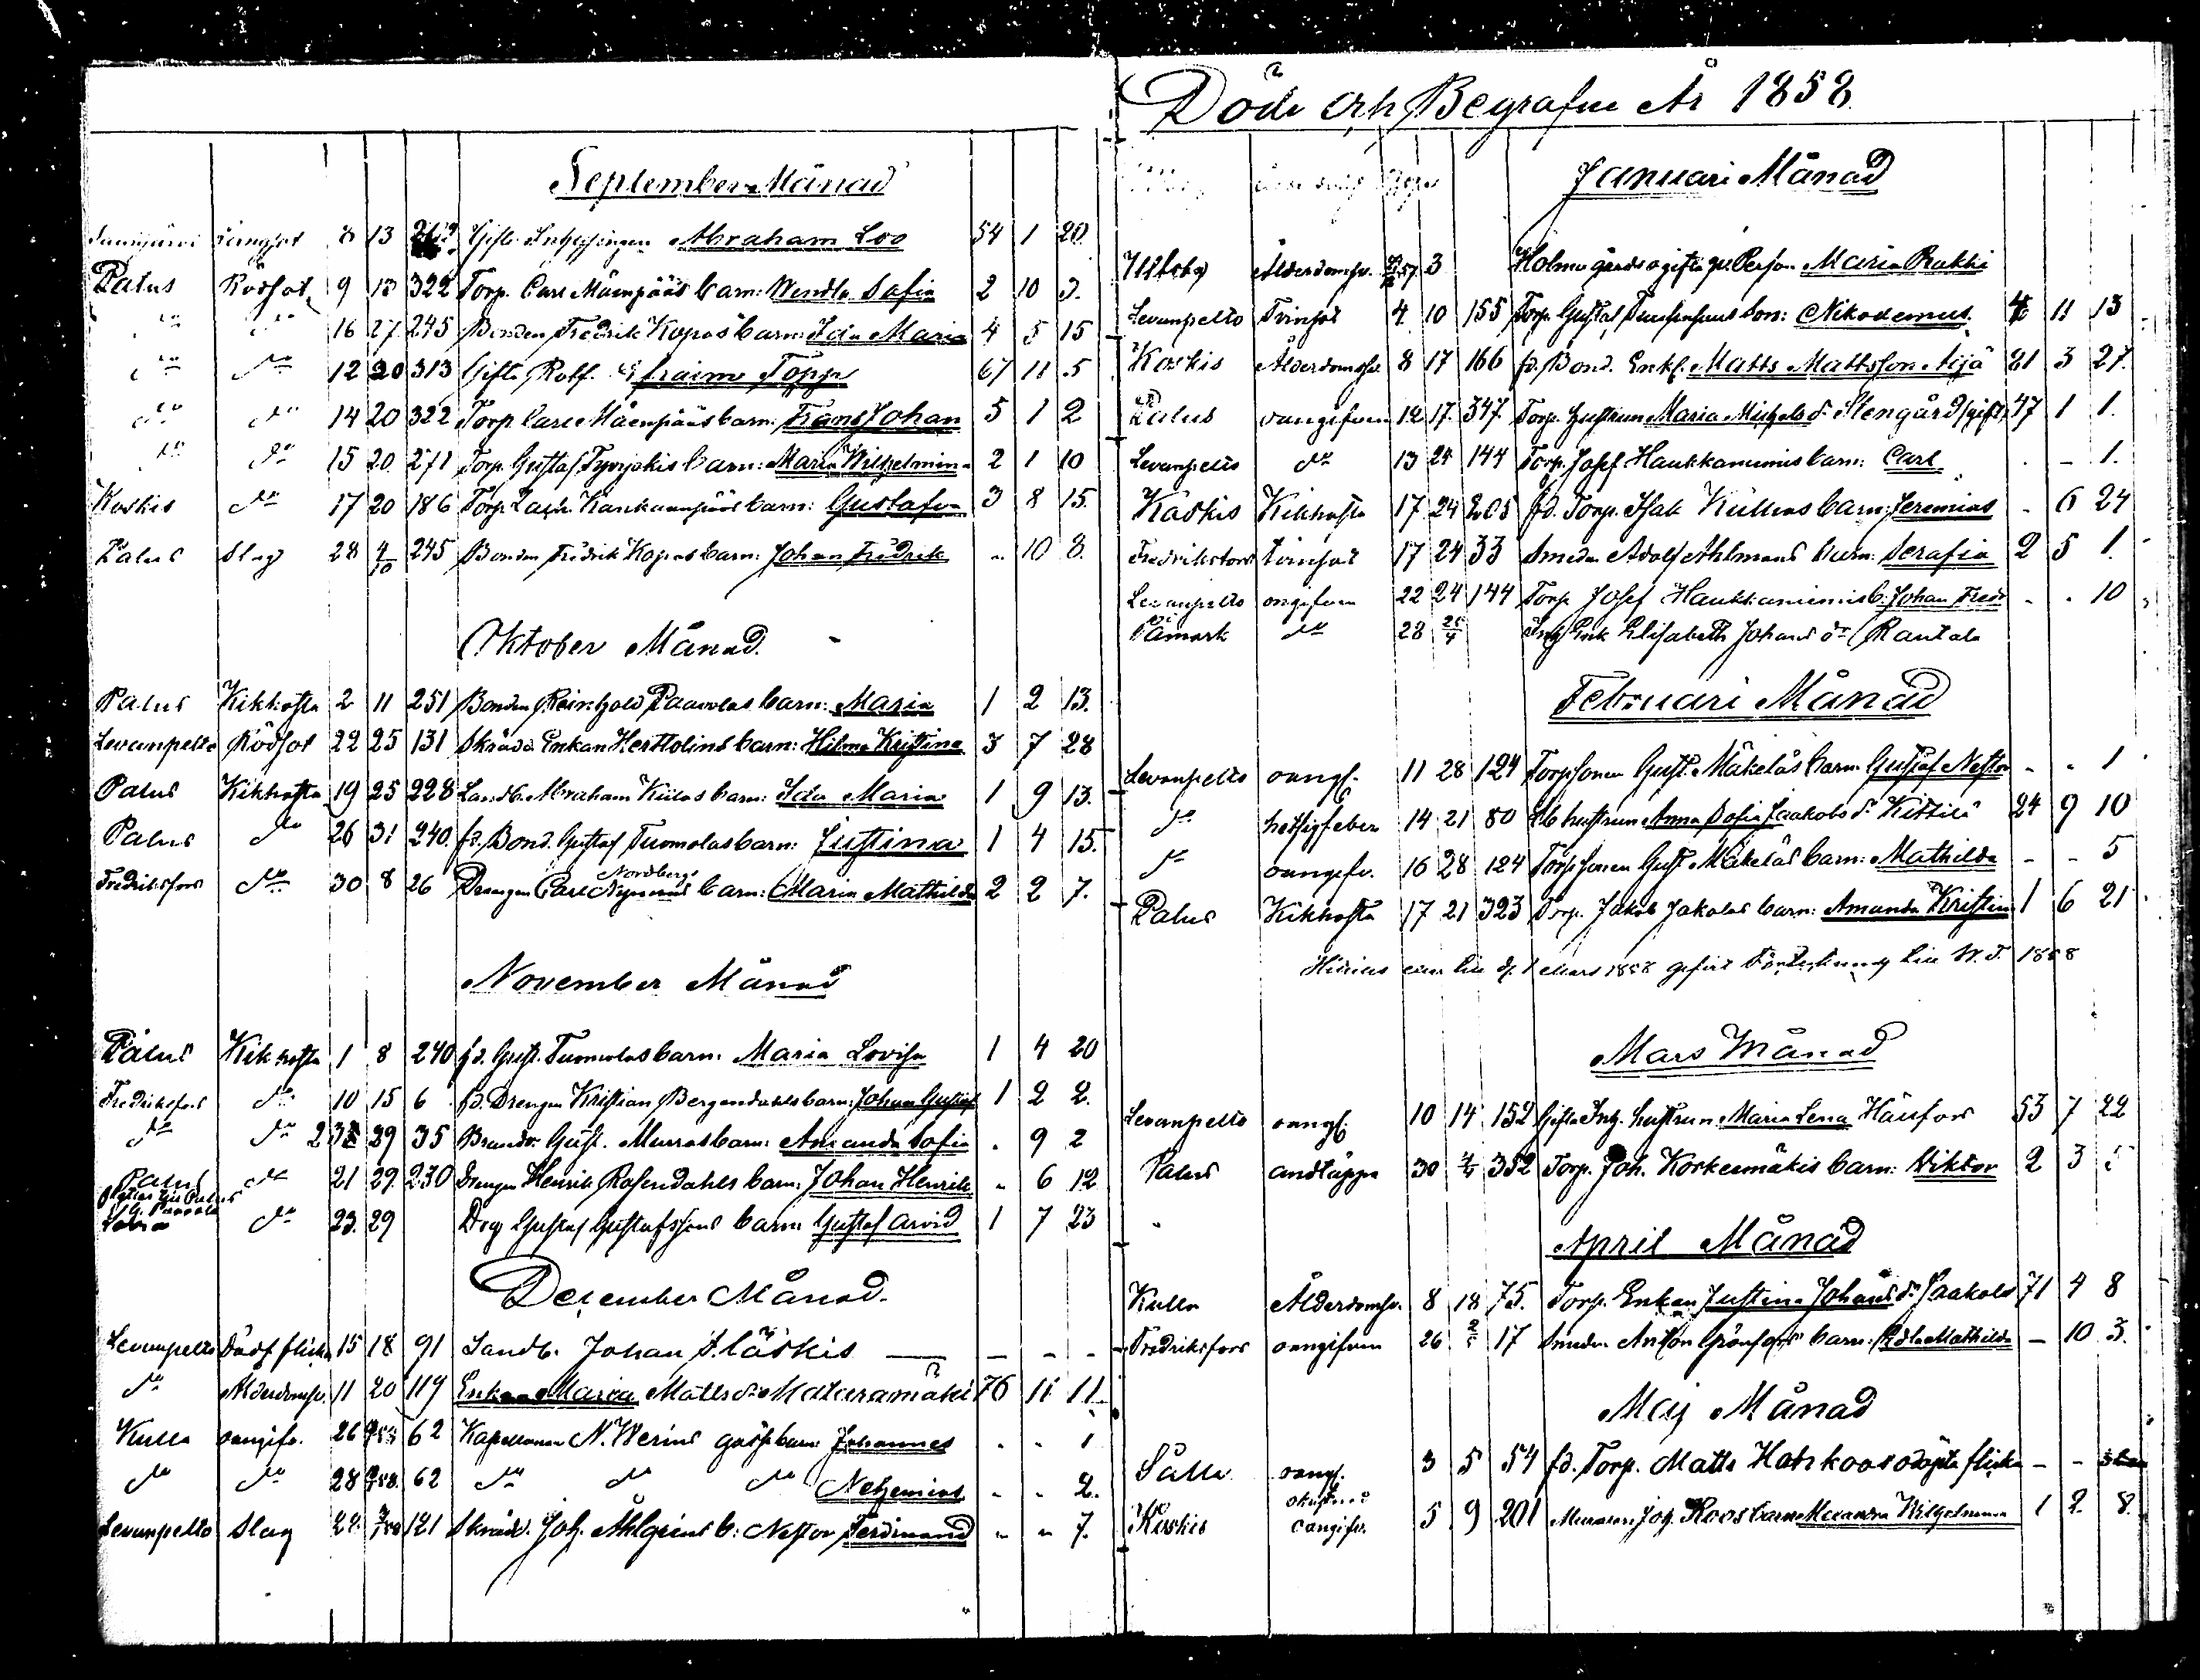 September Månad
8 13 Abraham Loo 54 1 20
Palus Rödsot 9 13 322 Torp. Carl Mäenpääs barn: Wendla Sofia 2 10 3.
do do 16 27 245 Bonden Fredrik Kopas barn: Ida Maria 4 5 15
do do 12 20 313 Gifta Rotf. Efraim Toppi 67 11 5
do do 14 20 322 Torp Carl Mäenpääs barn: Frans Johan 5 1 2
do do 15 20 271 Torp. Gustaf Tyrrjäkis barn: Maria Wilhelmina 2 1 10
Koskis do 17 20 186 Torp. Zach. Kankaanpääs barn: Gustafva 3 8 15.
Palus Slag 28 4/10 245 Bonden Fredrik Kopas barn: Johan Fredrik - 10 8.
Oktober Månad.
Palus Kikhosta 2 11 251 Bonden Reinhold Paavolas barn: Maria 1 2 13.
Levanpelto Rödsot 22 25 131 Skrädd. Enkan Herttolins barn: Hilma Kristina 3 7 28
Palus Kikhosta 19 25 228 Landb. Abraham Kiilas barn: Ida Maria 1 9 13.
Palus do 26 31 240. fd. Bond. Gustaf Tuomolas barn: Justina 1 4 15.
Nordbergs
Fredriksfors do 30 8 26 Drengen Carl Nymans barn: Maria Mathilda 2 2 7.
November Månad
Palus Kikhosta 1 8 240 fd. Gust. Tuomolas barn: Maria Lovisa 1 4 20
Fredriksfors do 10 15 6 fd. Drengen Kristian Bergendahls barn: Johan Gustaf 1 2 2.
do do 23 29 35 Gust. Murras barn: Amanda Sofia . 9 2
Palus do 21 29. 230 Drengen Henrik Rosendahls barn: Johan Henrik - 6 12
do 23. 29 Drg Gustaf Gustafssons barn: Gustaf Arvid 1 7 23
December Månad.
Levanpelto Dödf flicka 15 18 91 Landb. Johan Släskis — - - -
do Ålderdomsv. 11 20 119 Enkan Maria Mattsdr Matieramäki 76 11 11
Kulla oangifv. 26 62 Kapellanen N. Werins barn: Johannes - - 1
do do 28 62 do do do Nehemias - - 2.
Levanpelto Slag 121 Skrädd. Joh. Åhlgrens b: Nestor Ferdinand - - 7.
Döde och Begrafne År 1858.
Januari Månad
Ulfsby Ålderdomsv. 3 Maria Rukki
Levanpelto Tvinsot 4. 10 155 Torp. Gustaf son: Nikodemus 4 11 13
Koskis Ålderdomsv. 8 17 166 fd. Bond. Enkl. Matts Mattsson Äijä 81 3 27.
Palus oangifven 12 17. 347 Torp. hustrun Maria Michelsdr Stengård (gift) 47 1 1.
Levanpelto do 13 24 144 Torp. Josef Haukkaniemis barn: Carl . - 1.
Koskis Kikhosta 17. 24 205 fd. Torp. Isak Kullias barn: Jeremias - 6 24
Fredriksfors Tvinsot 17 24 33 Smeden Adolf Ahlmans barn: Serafia 2 5 1.
Levanpelto oangifven 22 24 144 Torp Josef Haukkaniemis b: Johan Fredr - - 10
Påmark do 28 25/4 Inh Enk Elisabeth Johansdr Rantala
Februari Månad
Levanpelto oangf. 11 28 124 Torpsonen Gust. Mäkeläs barn: Gustaf Nestor - - 1
do hetsigfeber 14 21 80 hustrun Anna Sofia Jaakobsdr Kittilä 24 9 10
do oangifv. 16 28 124 Torpsonen Gust Mäkeläs barn: Mathilda - - 5
Palus Kikhosta 17 21 323 Torp. Jakob Jakolas barn: Amanda Kristina 1 6 21
Mars 1858 1858
Mars Månad
Levanpelto oangf. 10 14 152 Gifta Inh. hustrun Maria Lena Hänfors 53 7 22
Palus andtäppa 30 352 Torp. Joh. Korkeemäkis barn: Viktor 2 3 5
April Månad
Kulla Ålderdomsv. 8 18 75. Torp. Enkan Justina Johansdr Jaakola 71 4 8
Fredriksfors oangifven 26 17 Smeden Anton Grönfors barn: Edla Mathilda - 10 3.
Maj Månad
oangf. 3 5 54 fd. Torp. Matts Hatskoos odöpta flicka - -
Koskis oangifv. 5 9 201 Muraren Joh. Roos barn Alexandra Wilhelmina 1 2 8.